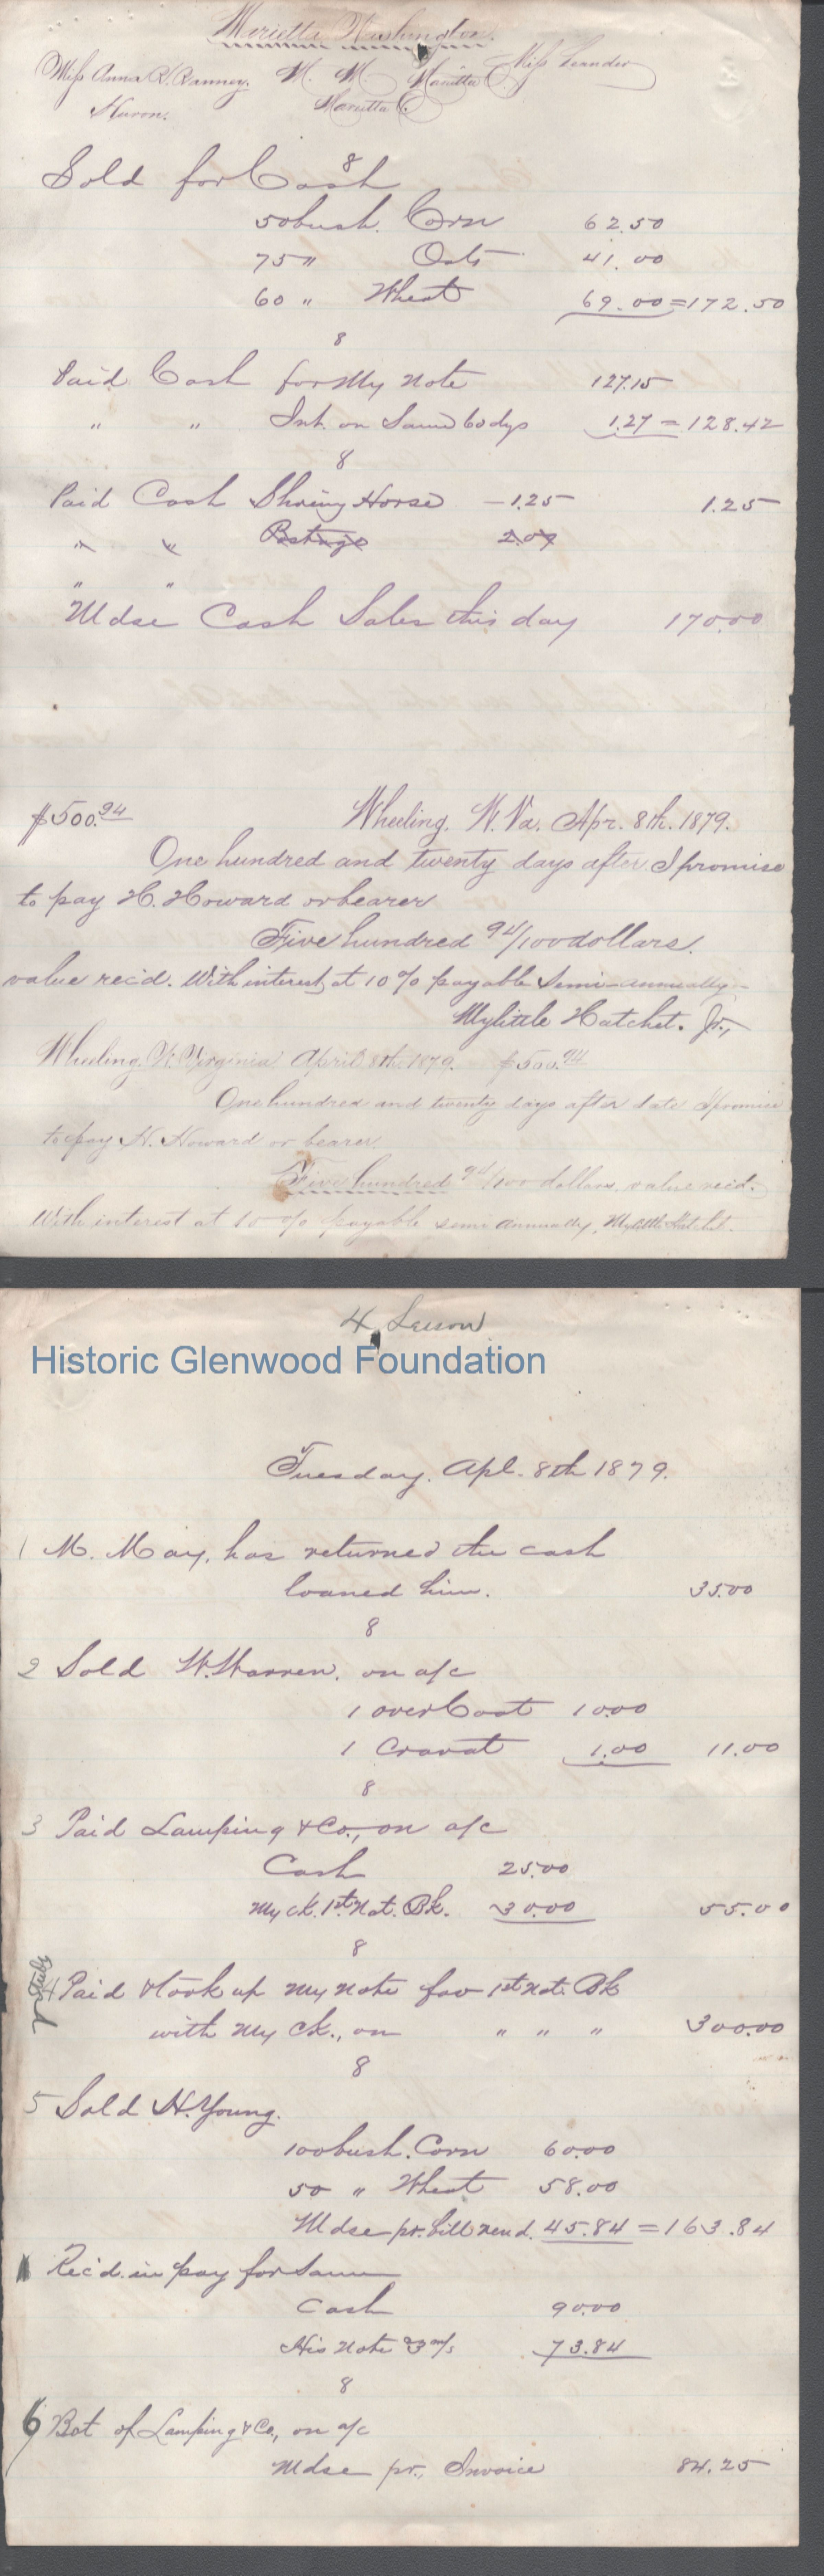 Marietta Washington.
Miss Anna R. Ranney. M. M. Marietta Miss Leander
Huron. Marietta C.
8
Sold for Cash
50 bush. Corn 62.50
75 " Oats 41.00
60 " Wheat 69.00 = 172.50
8
Paid Cash for My Note 127.15
" " Int. on Same 60 dys 1.27 = 128.42
8
Paid Cash Shoeing Horse - 1.25 1.25
" " Postage 2.09
" "
Mdse Cash Sales this day 170.00
$500.94 Wheeling. W. Va. Apr. 8th. 1879.
One hundred and twenty days after I promise
to pay H. Howard or bearer
Five hundred 94/100 dollars.
value rec'd. With interest at 10% payable Semi-annually.
Mylittle Hatchet. Jr.,
Wheeling. W. Virginia April 8th. 1879. $500.94
One hundred and twenty days after date I promise
to pay H. Howard or bearer.
Five hundred 94/100 dollars, value recd.
With interest at 10% payable semi annually, Mylittle Hatchet.
4 Lesson
Historic Glenwood Foundation
Tuesday. Apl. 8th 1879.
1 M. May, has returned the cash
loaned him. 35.00
8
2 Sold W. Warren. on a/c
1 over Coat 10.00
1 Cravat 1.00 11.00
8
3 Paid Lamping & Co., on a/c
Cash 25.00
My ck. 1st Nat. Bk. 30.00 55.00
8
4 Paid & took up My Note fav 1st Nat. Bk
with My Ck., on " " " 300.00
8
5 Sold H. Young.
100 bush. Corn 60.00
50 " Wheat 58.00
Mdse pr. bill rend. 45.84 = 163.84
Rec'd. in pay for Same
Cash 90.00
His Note 3 m/s 73.84
8
6 Bot of Lamping & Co., on a/c
Mdse pr., Invoice 84.25